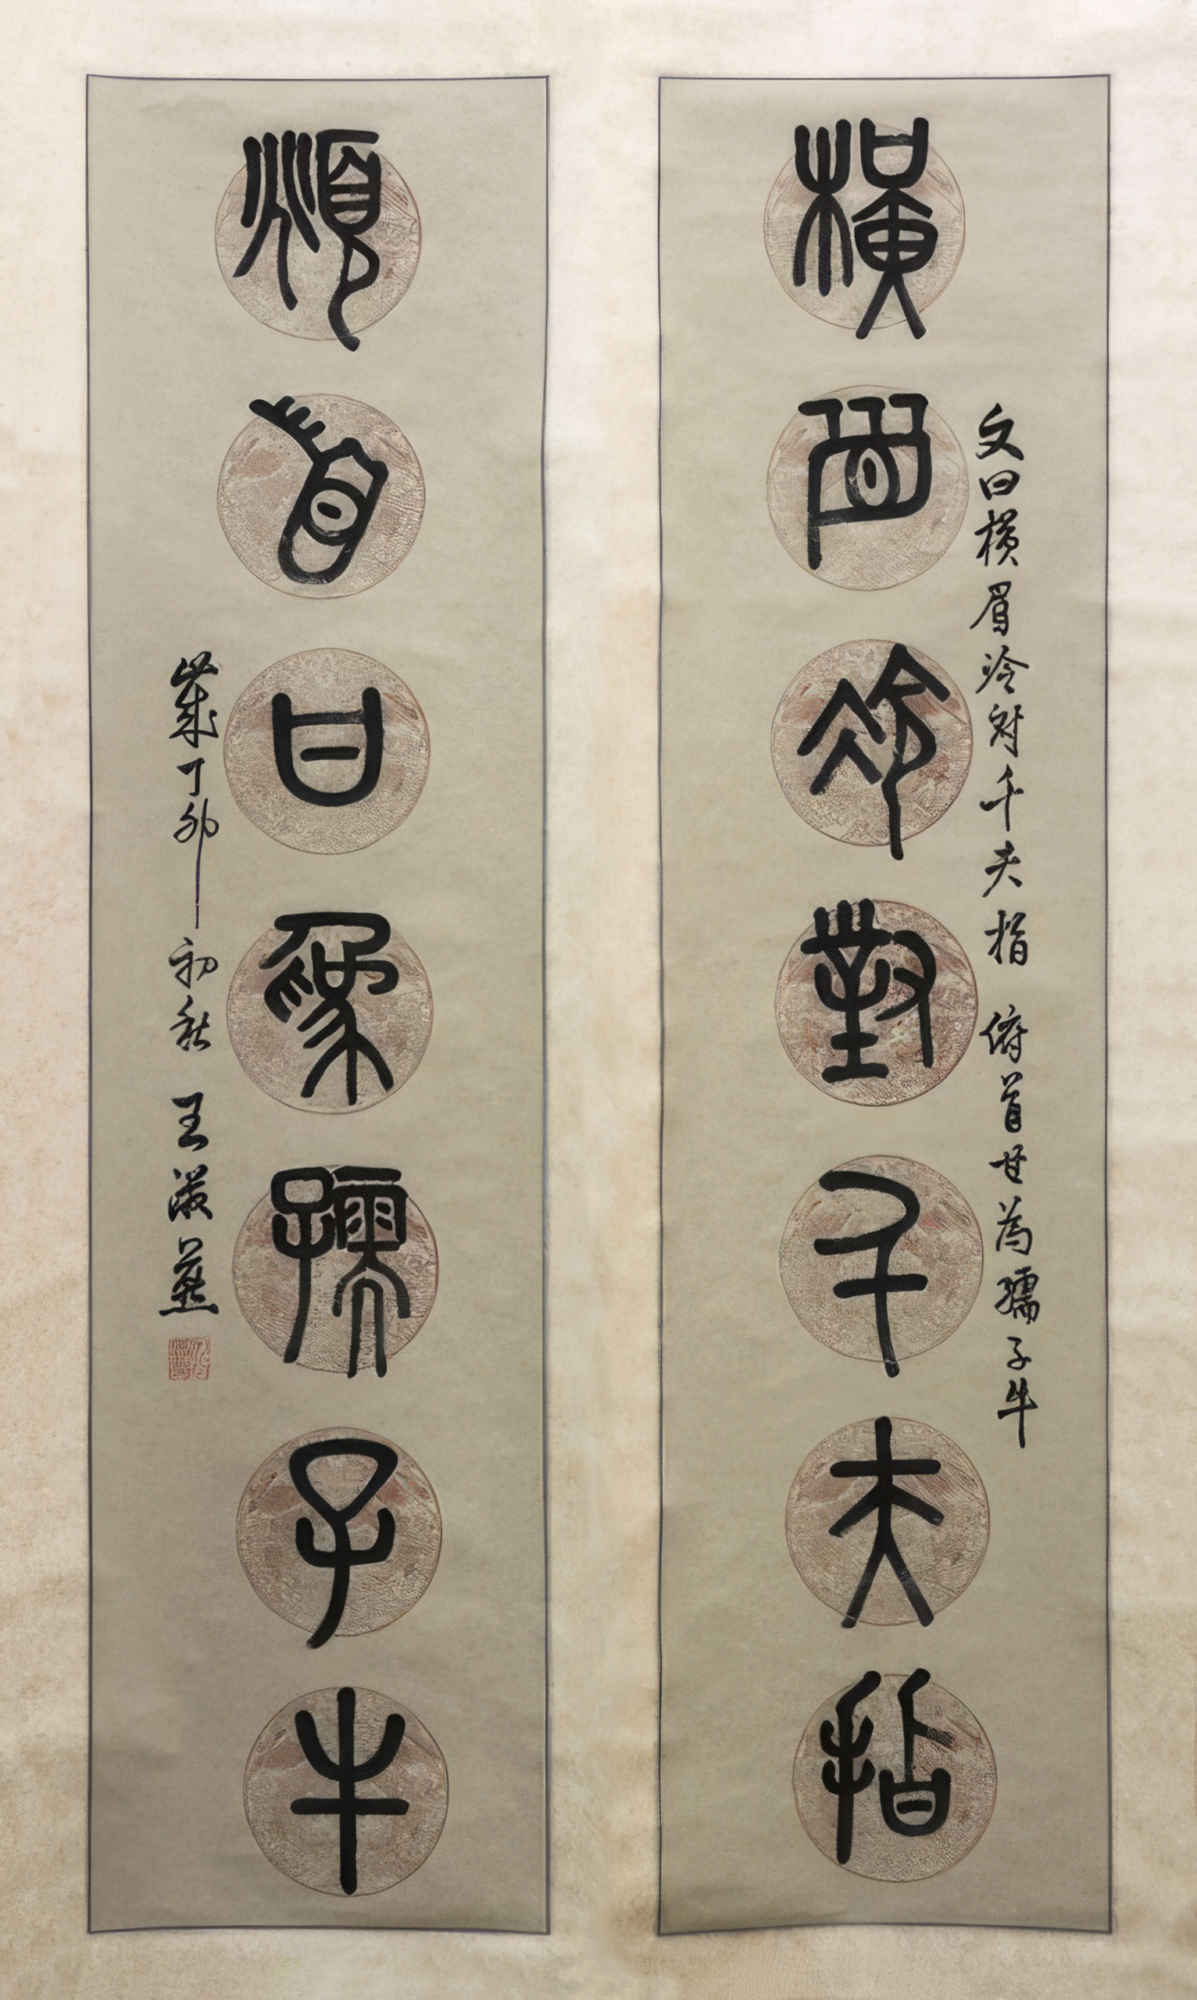 橫眉冷對千夫指
文曰橫眉冷對千夫指 俯首甘為孺子牛
頫首甘為孺子牛
歲丁卯初秋 王